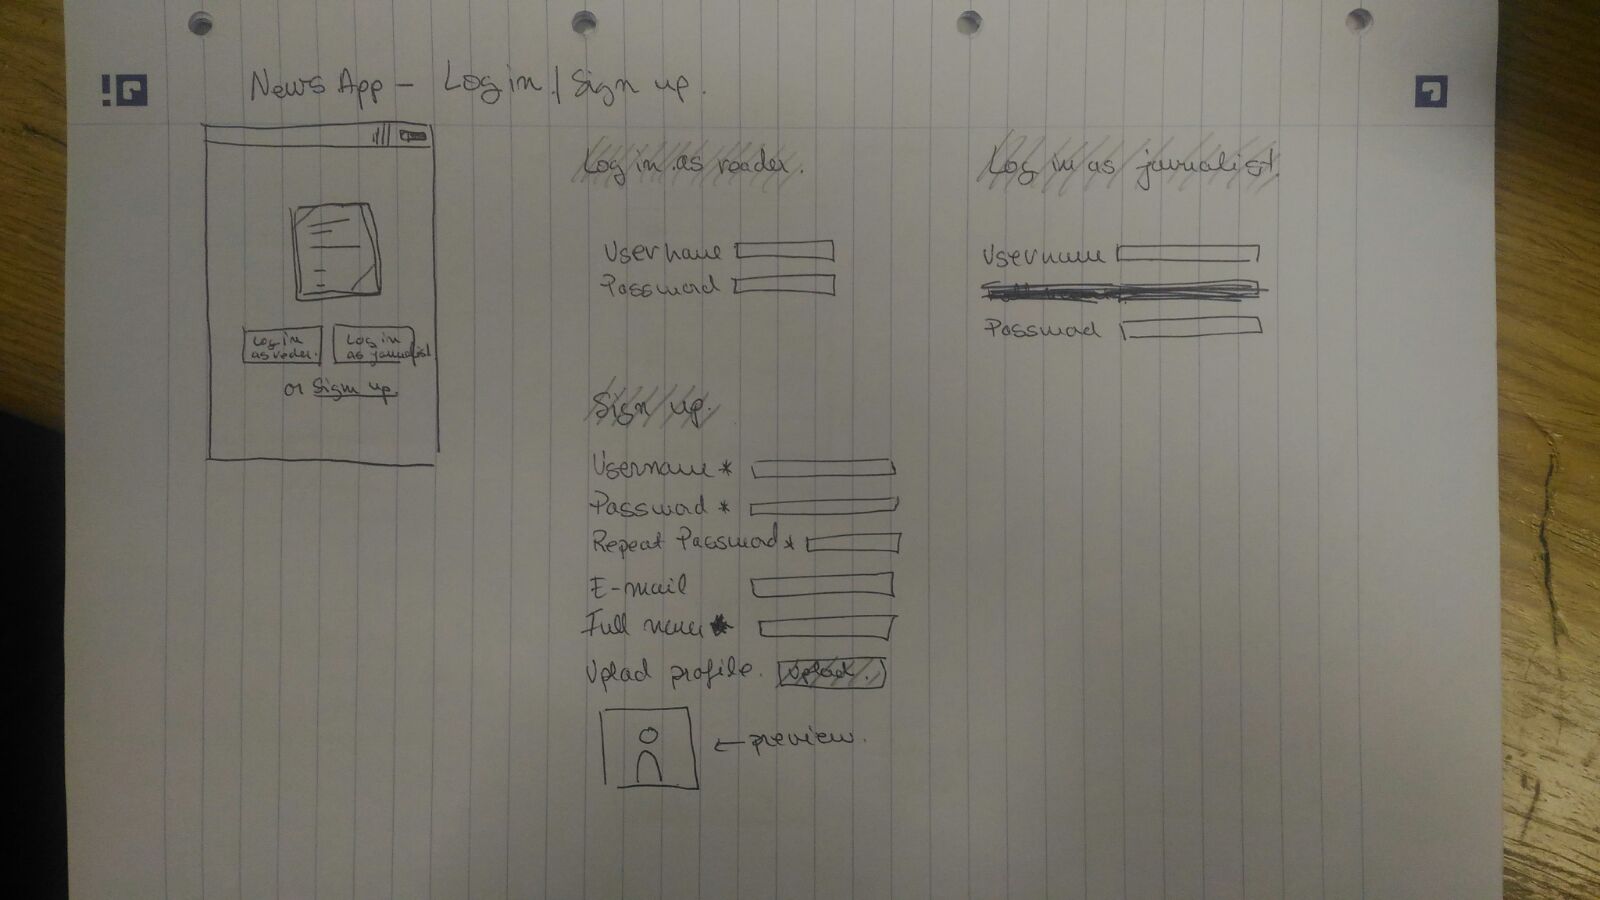 News App - Log in / Sign up.
Log in
as reder.
Log in
as journalist
or Sign up.
Log in as reader.
Username
Password
Sign up.
Username *
Password *
Repeat Password *
E-mail
Full name *
Uplad profile. Uplad.
← preview.
Log in as journalist.
Username
Password